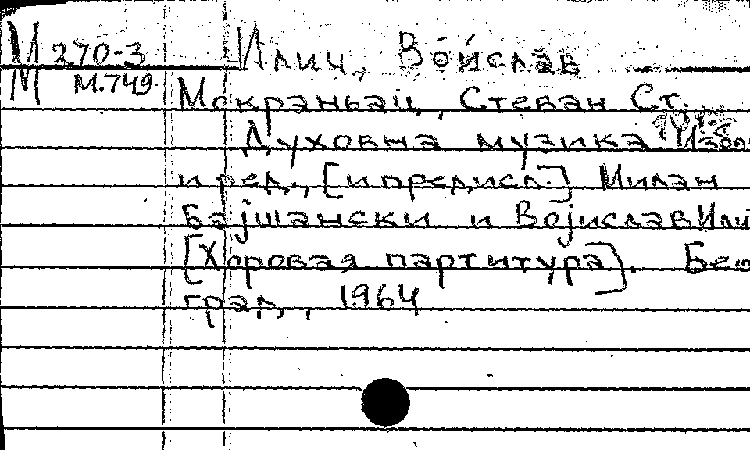 М 270-3 Илич, Војислав
М.749
Мокраньац, Стеван Ст.
Духовна музика Изд
и ред., [и предисл.] Милан
Бајшански и Војислав Или
[Хоровая партитура]. Бео
град, 1964